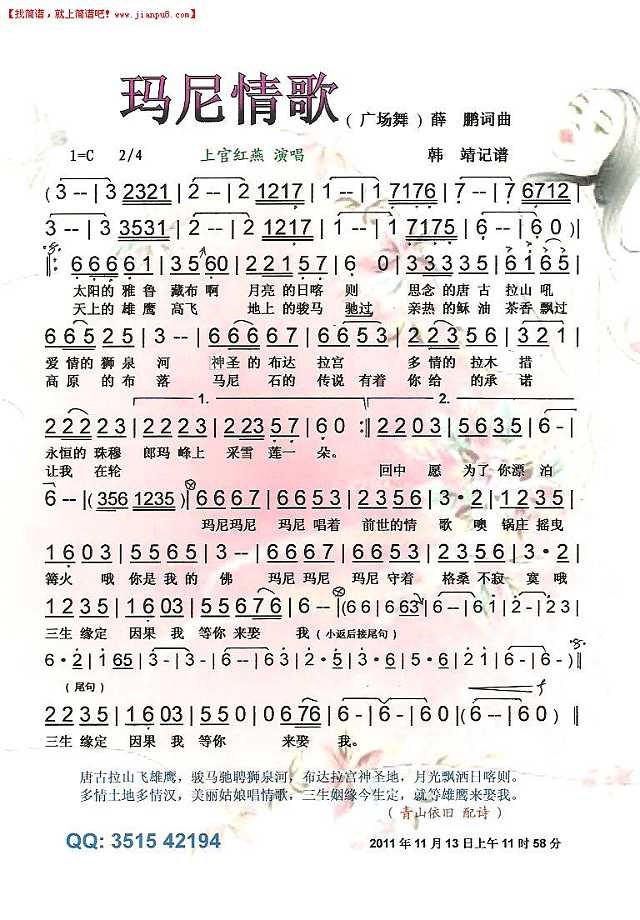 【找简谱，就上简谱吧！www.jianpu8.com】
玛尼情歌
（广场舞）薛 鹏词曲
1=C 2/4 上官红燕 演唱 韩 靖记谱
(3 -- | 3 -- | 2321 | 2 -- | 2 -- | 1217 | 1 -- | 1 -- | 7176 | 7 -- | 7 -- | 6712 |
3 -- | 3 -- | 3531 | 2 -- | 2 -- | 1217 | 1 -- | 1 -- | 7175 | 6 -- | 6 0 )|
6 6 6 6 1 | 3 5 6 0 | 2 2 1 2 5 | 6 0 | 3 3 3 3 5 | 6 1 6 5 |
太阳的 雅 鲁 藏布 啊 月亮 的日喀 则 思念 的唐 古 拉山 吼
天上的 雄 鹰 高飞 地上 的骏马 驰过 亲热 的稣 油 茶香 飘过
6 6 5 2 5 | 3 -- | 6 6 6 6 7 | 6 6 5 3 | 2 2 2 2 3 5 | 3 2 1 |
爱 情的 狮 泉 河 神圣 的 布达 拉宫 多 情的 拉木 措
高 原 的 布 落 马尼 石的 传说 有着 你 给 的 承 诺
1. 2.
2 2 2 2 | 2 2 0 3 | 2 2 2 3 | 2 2 3 5 | 6 0 :| 2 2 0 3 | 5 6 5 3 | 6 - |
永恒的 珠穆 郎玛 峰上 采雪 莲一 朵。
让我 在轮 回中 愿 为了 你 漂 泊
6 -- |( 356 1235 )| 6 6 6 7 | 6 6 5 3 | 6 6 6 5 | 3 · 2 | 1 2 3 5 |
玛尼玛尼 玛尼 唱着 前世的情 歌 噢 锅庄 摇曳
1 6 0 3 | 5 5 6 5 | 3 -- | 6 6 6 7 | 6 6 5 3 | 2 2 3 5 | 3 · 2 |
篝火 哦 你是 我 的 佛 玛尼 玛尼 玛尼 守着 格桑 不寂 寞 哦
1 2 3 5 | 1 6 0 3 | 2 3 5 7 6 | 6 -- |( 6 6 | 6 63 | 6 - | 1 2 | 1 23 | 2 - |
三生 缘定 因果 我 等你 来娶 我（小返后接尾句）
6 · 2 | 1 65 | 3 - | 3 - | 6 - | 6 - | 5 · 6 | 5 3 | 2 - | 2 - | 5 · 6 | 2 1 | 6 - | 6 - )|
（尾句）
2 2 3 5 | 1 6 0 3 | 2 2 0 | 2 0 | 6 0 3 76 | 6 - | 6 - | 6 - | 6 - ||
三生 缘定 因果 我 等你 来娶 我。
唐古拉山飞雄鹰，骏马驰聘狮泉河，布达拉宫神圣地，月光飘洒日喀则。
多情土地多情汉，美丽姑娘唱情歌，三生姻缘今生定，就等雄鹰来娶我。
（青山依旧 配诗）
QQ: 3515 42194
2011 年 11 月 13 日上午 11 时 58 分